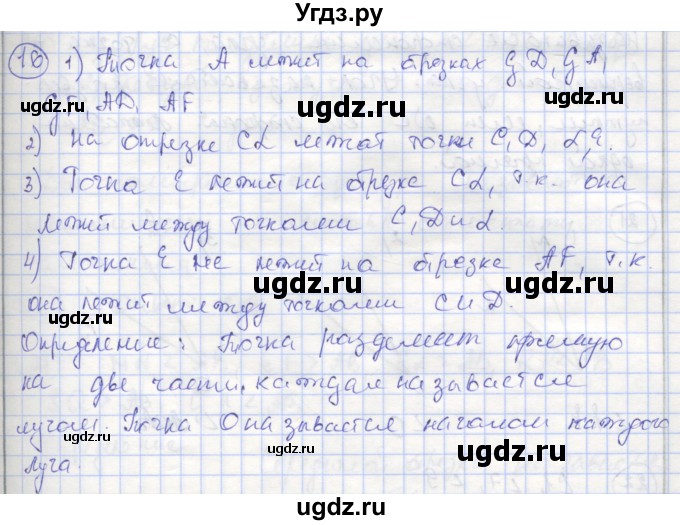 Угдз.ру
16 1) Точка А лежит на отрезках GD, GA,
GF, AD, AF
2) На отрезке CL лежат точки C, D, L, E.
3) Точка E лежит на отрезке CL, т.к. она
лежит между точками C, D и L.
4) Точка E не лежит на отрезке AF, т.к.
она лежит между точками C и D.
Определение: Точка разделяет прямую
на две части, каждая называется
лучом. Точка О называется началом каждого
луча.
ugdz.ru ugdz.ru ugdz.ru
ugdz.ru
ugdz.ru ugdz.ru
ugdz.ru
ugdz.ru ugdz.ru ugdz.ru
ugdz.ru